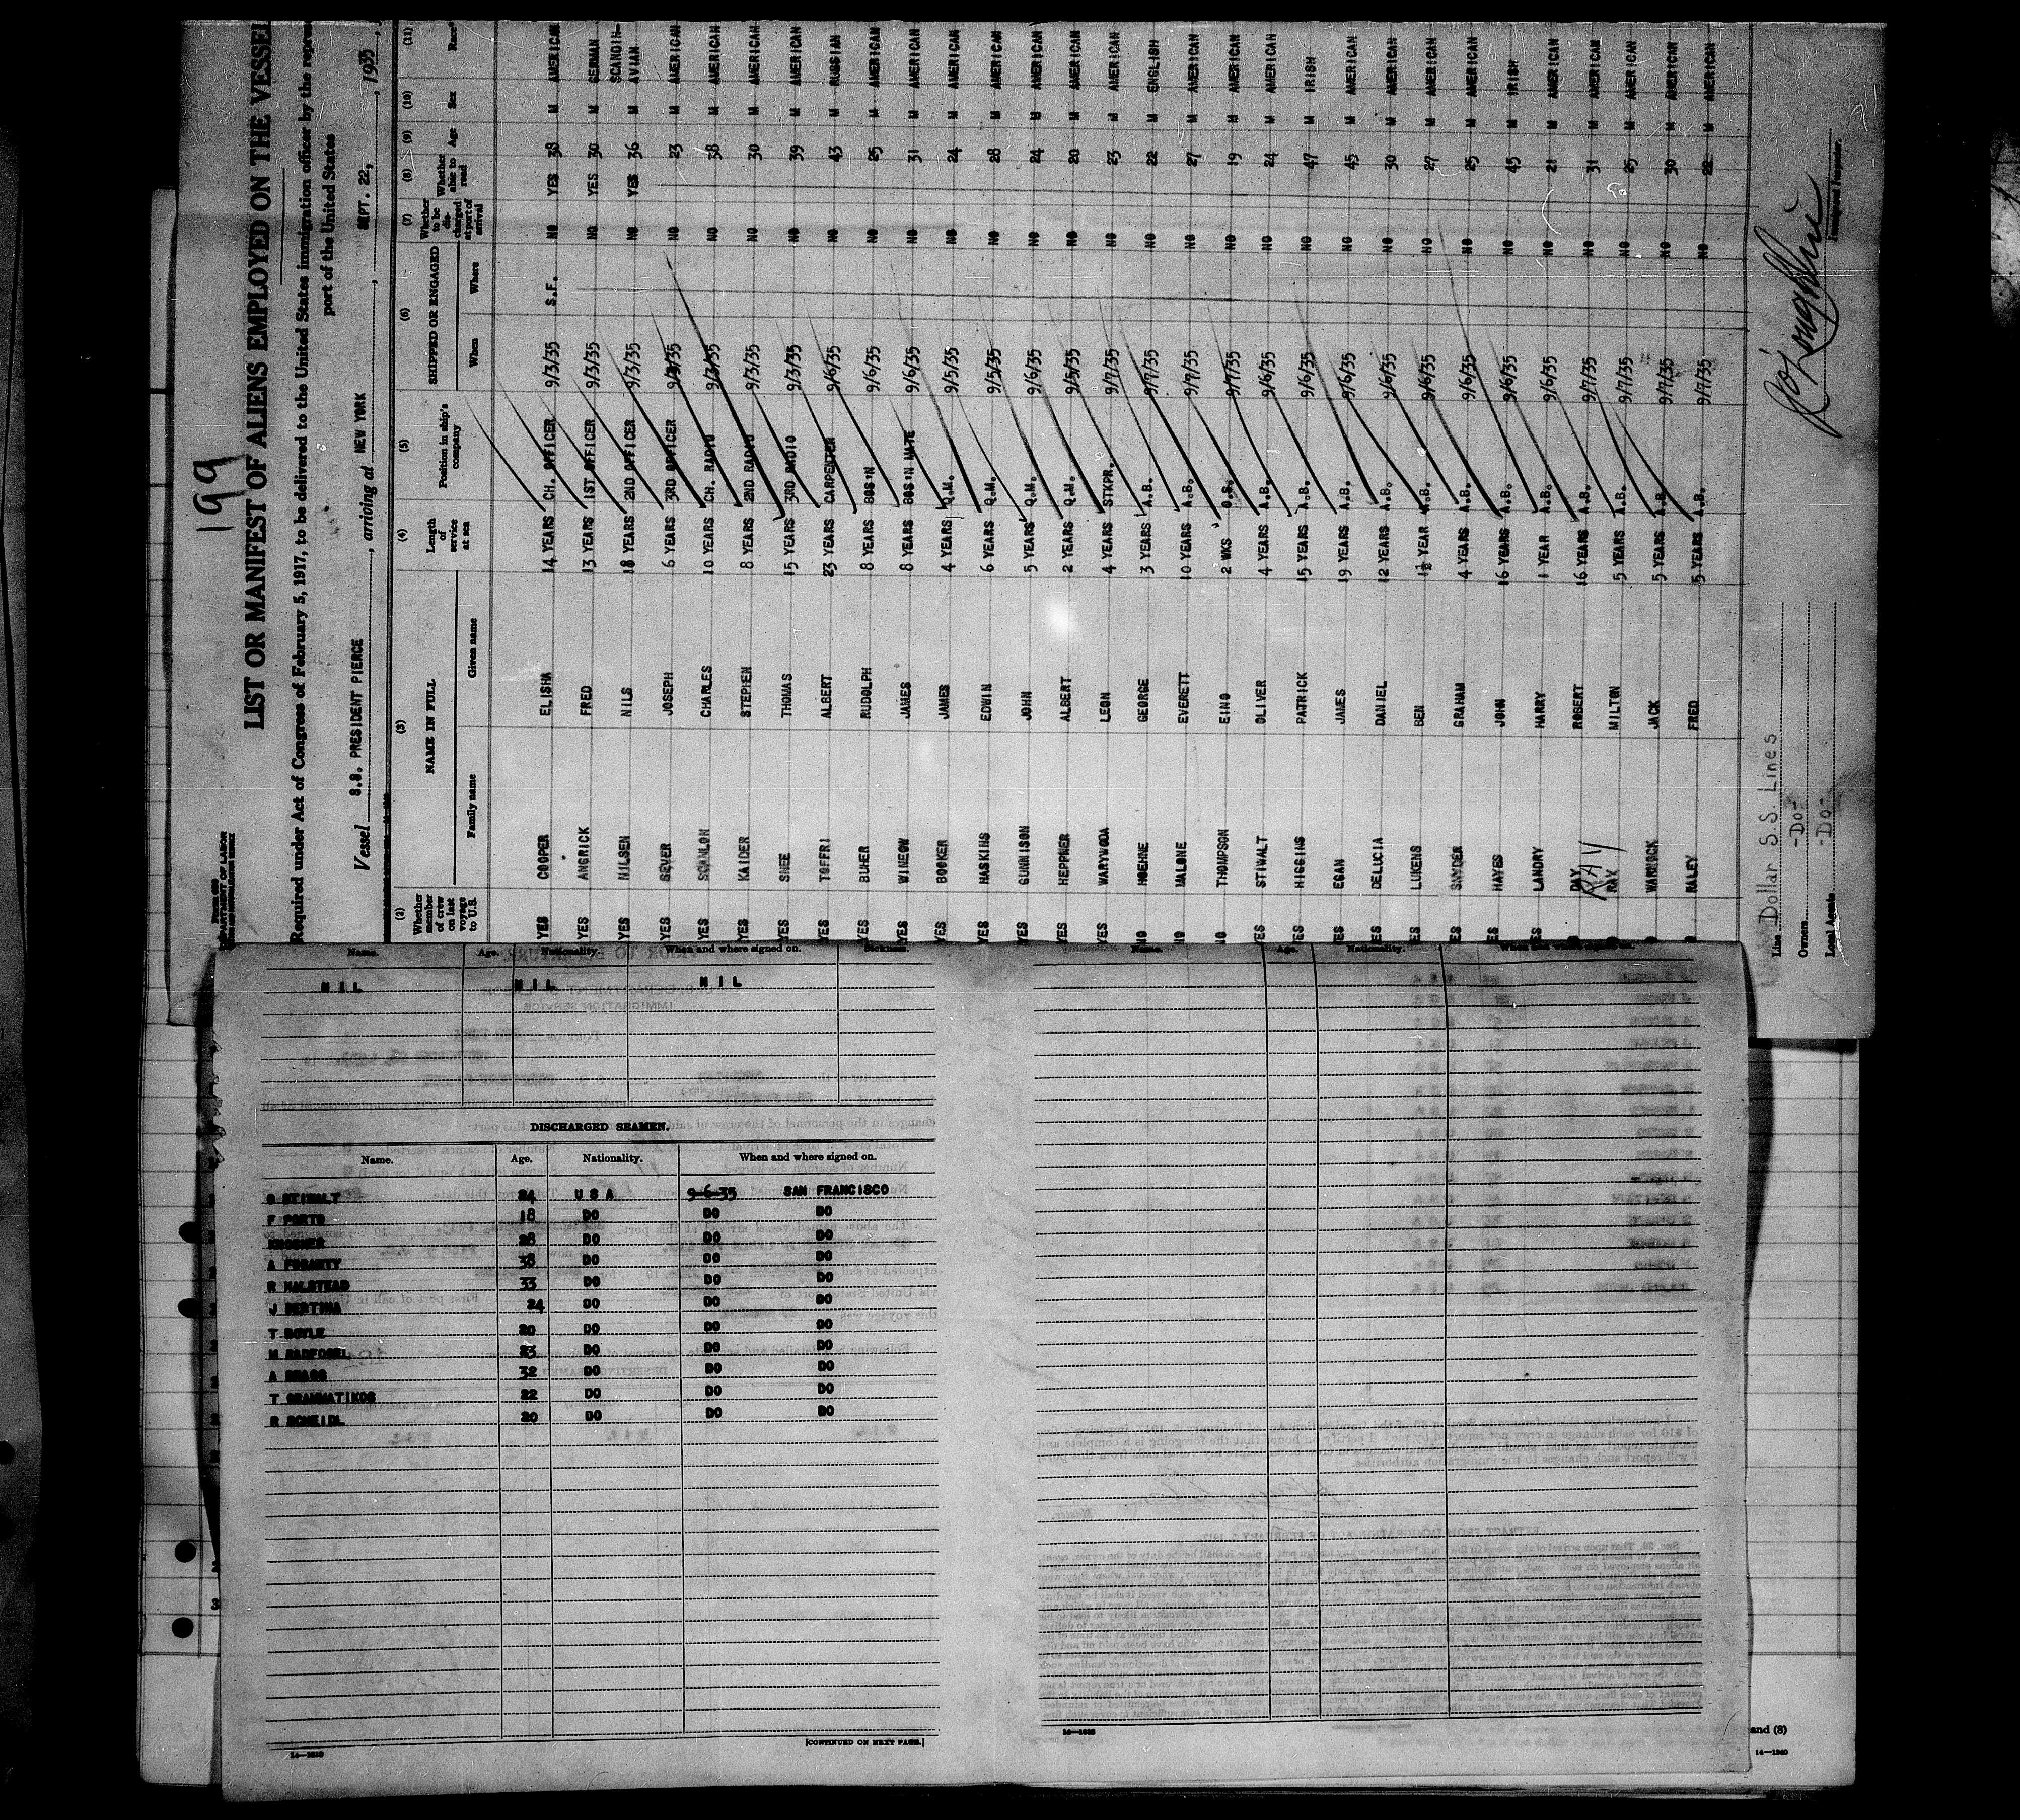 199
LIST OR MANIFEST OF ALIENS EMPLOYED ON THE VESSEL
Required under Act of Congress of February 5, 1917, to be delivered to the United States immigration officer by the
port of the United States
Vessel S.S. PRESIDENT PIERCE, arriving at NEW YORK, SEPT. 22, 1935
(2) (3) (4) (5) (6) (7) (8) (9) (10) (11)
Whether member of crew on last voyage to U.S. NAME IN FULL Family name Given name Length of service at sea Position in ship's company SHIPPED OR ENGAGED When Where Whether to be discharged at port of arrival Whether able to read Age Sex Race*
YES COOPER ELISHA 14 YEARS CH. OFFICER 9/3/35 S.F. NO YES 38 M AMERICAN
YES ANGRICK FRED 13 YEARS 1ST OFFICER 9/3/35 NO YES 30 M GERMAN
YES NILSEN NILS 18 YEARS 2ND OFFICER 9/3/35 NO YES 36 M SCANDIN-AVIAN
YES SEVER JOSEPH 6 YEARS 3RD OFFICER 9/3/35 NO 23 M AMERICAN
YES SCANLON CHARLES 10 YEARS CH. RADIO 9/3/35 NO 38 M AMERICAN
YES KAIDER STEPHEN 8 YEARS 2ND RADIO 9/3/35 NO 30 M AMERICAN
YES SHEE THOMAS 15 YEARS 3RD RADIO 9/3/35 NO 39 M AMERICAN
YES TOFFRI ALBERT 23 YEARS CARPENTER 9/6/35 NO 43 M RUSSIAN
YES BUHER RUDOLPH 8 YEARS BOS'N 9/6/35 NO 25 M AMERICAN
YES WINEOW JAMES 8 YEARS BOS'N MATE 9/6/35 NO 31 M AMERICAN
YES BOOKER JAMES 4 YEARS Q.M. 9/5/35 NO 24 M AMERICAN
YES HASKINS EDWIN 6 YEARS Q.M. 9/5/35 NO 28 M AMERICAN
YES GUNNISON JOHN 5 YEARS Q.M. 9/6/35 NO 24 M AMERICAN
YES HEPPNER ALBERT 2 YEARS Q.M. 9/5/35 NO 20 M AMERICAN
YES WARYWODA LEON 4 YEARS STKPR. 9/7/35 NO 23 M AMERICAN
NO HOEHNE GEORGE 3 YEARS A.B. 9/7/35 NO 22 M ENGLISH
NO MALONE EVERETT 10 YEARS A.B. 9/7/35 NO 27 M AMERICAN
NO THOMPSON EINO 2 WKS O.S. 9/7/35 NO 19 M AMERICAN
YES STIWALT OLIVER 4 YEARS A.B. 9/6/35 NO 24 M AMERICAN
YES HIGGINS PATRICK 15 YEARS A.B. 9/6/35 NO 47 M IRISH
YES EGAN JAMES 19 YEARS A.B. 9/6/35 NO 45 M AMERICAN
YES DELUCIA DANIEL 12 YEARS A.B. 9/6/35 NO 30 M AMERICAN
YES LUKENS BEN 1½ YEAR A.B. 9/6/35 NO 27 M AMERICAN
YES SNYDER GRAHAM 4 YEARS A.B. 9/6/35 NO 25 M AMERICAN
YES HAYES JOHN 16 YEARS A.B. 9/6/35 NO 45 M IRISH
YES LANDRY HARRY 1 YEAR A.B. 9/6/35 NO 21 M AMERICAN
DAY ROBERT 16 YEARS A.B. 9/7/35 NO 31 M AMERICAN
RAY RAY MILTON 5 YEARS A.B. 9/7/35 NO 25 M AMERICAN
WARLOCK JACK 5 YEARS A.B. 9/7/35 NO 30 M AMERICAN
RALEY FRED 5 YEARS A.B. 9/7/35 NO 22 M AMERICAN
Line Dollar S.S. Lines
Owners -Do-
Local Agents -Do-
Immigrant Inspector.
Name. Age. Nationality. When and where signed on. Sickness.
NIL NIL NIL
DISCHARGED SEAMEN.
Name. Age. Nationality. When and where signed on.
O STIWALT 24 U S A 9-6-35 SAN FRANCISCO
F PORTO 18 DO DO DO
KROSNER 28 DO DO DO
A FOGARTY 38 DO DO DO
R HALSTEAD 33 DO DO DO
J BERTINA 24 DO DO DO
T BOYLE 20 DO DO DO
M 23 DO DO DO
A BRAGG 32 DO DO DO
T GRAMMATIKOS 22 DO DO DO
R SCHEIDL 20 DO DO DO
[CONTINUED ON NEXT PAGE.]
Name. Age. Nationality. When and where signed on.
and (8)
14—1240